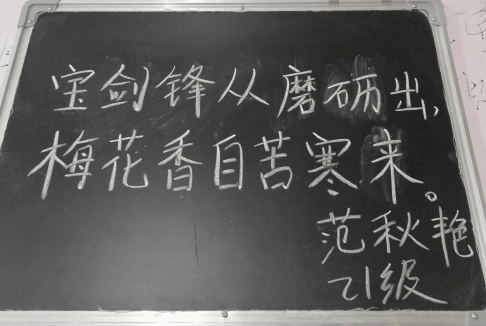 宝剑锋从磨砺出,
梅花香自苦寒来。
范秋艳
21级